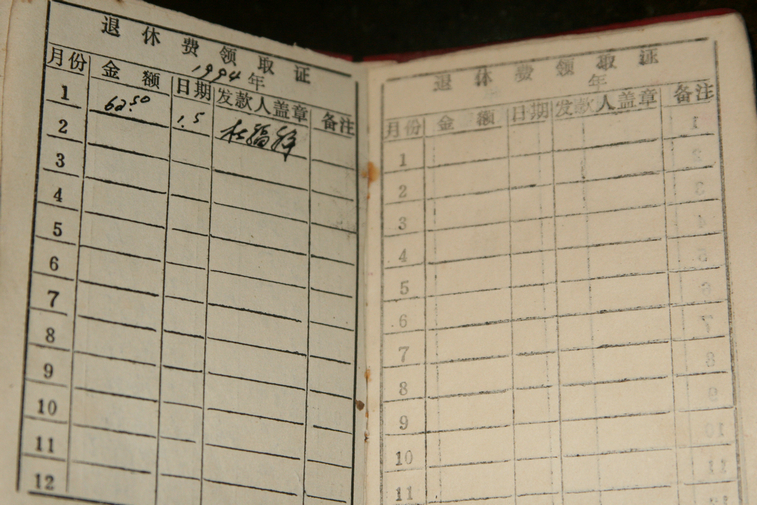 退休费领取证
1994年
月份 金额 日期 发款人盖章 备注
1 62.50 1.5
2
3
4
5
6
7
8
9
10
11
12
退休费领取证
年
月份 金额 日期 发款人盖章 备注
1
2
3
4
5
6
7
8
9
10
11